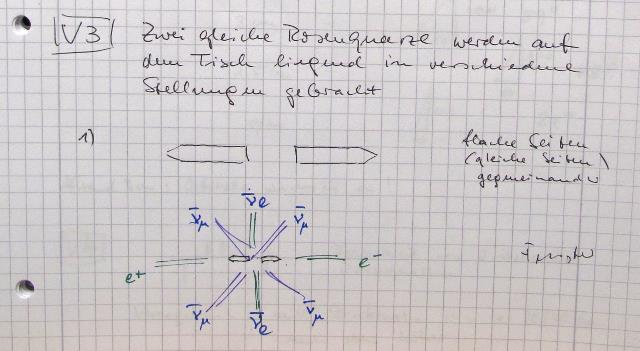 V3 Zwei gleiche Rosenquarze werden auf
dem Tisch liegend in verschiedene
Stellungen gebracht
1)
flache Seiten
(gleiche Seiten)
gegeneinander
ν̅e
ν̅μ ν̅μ
e+ e-
ν̅μ ν̅e ν̅μ